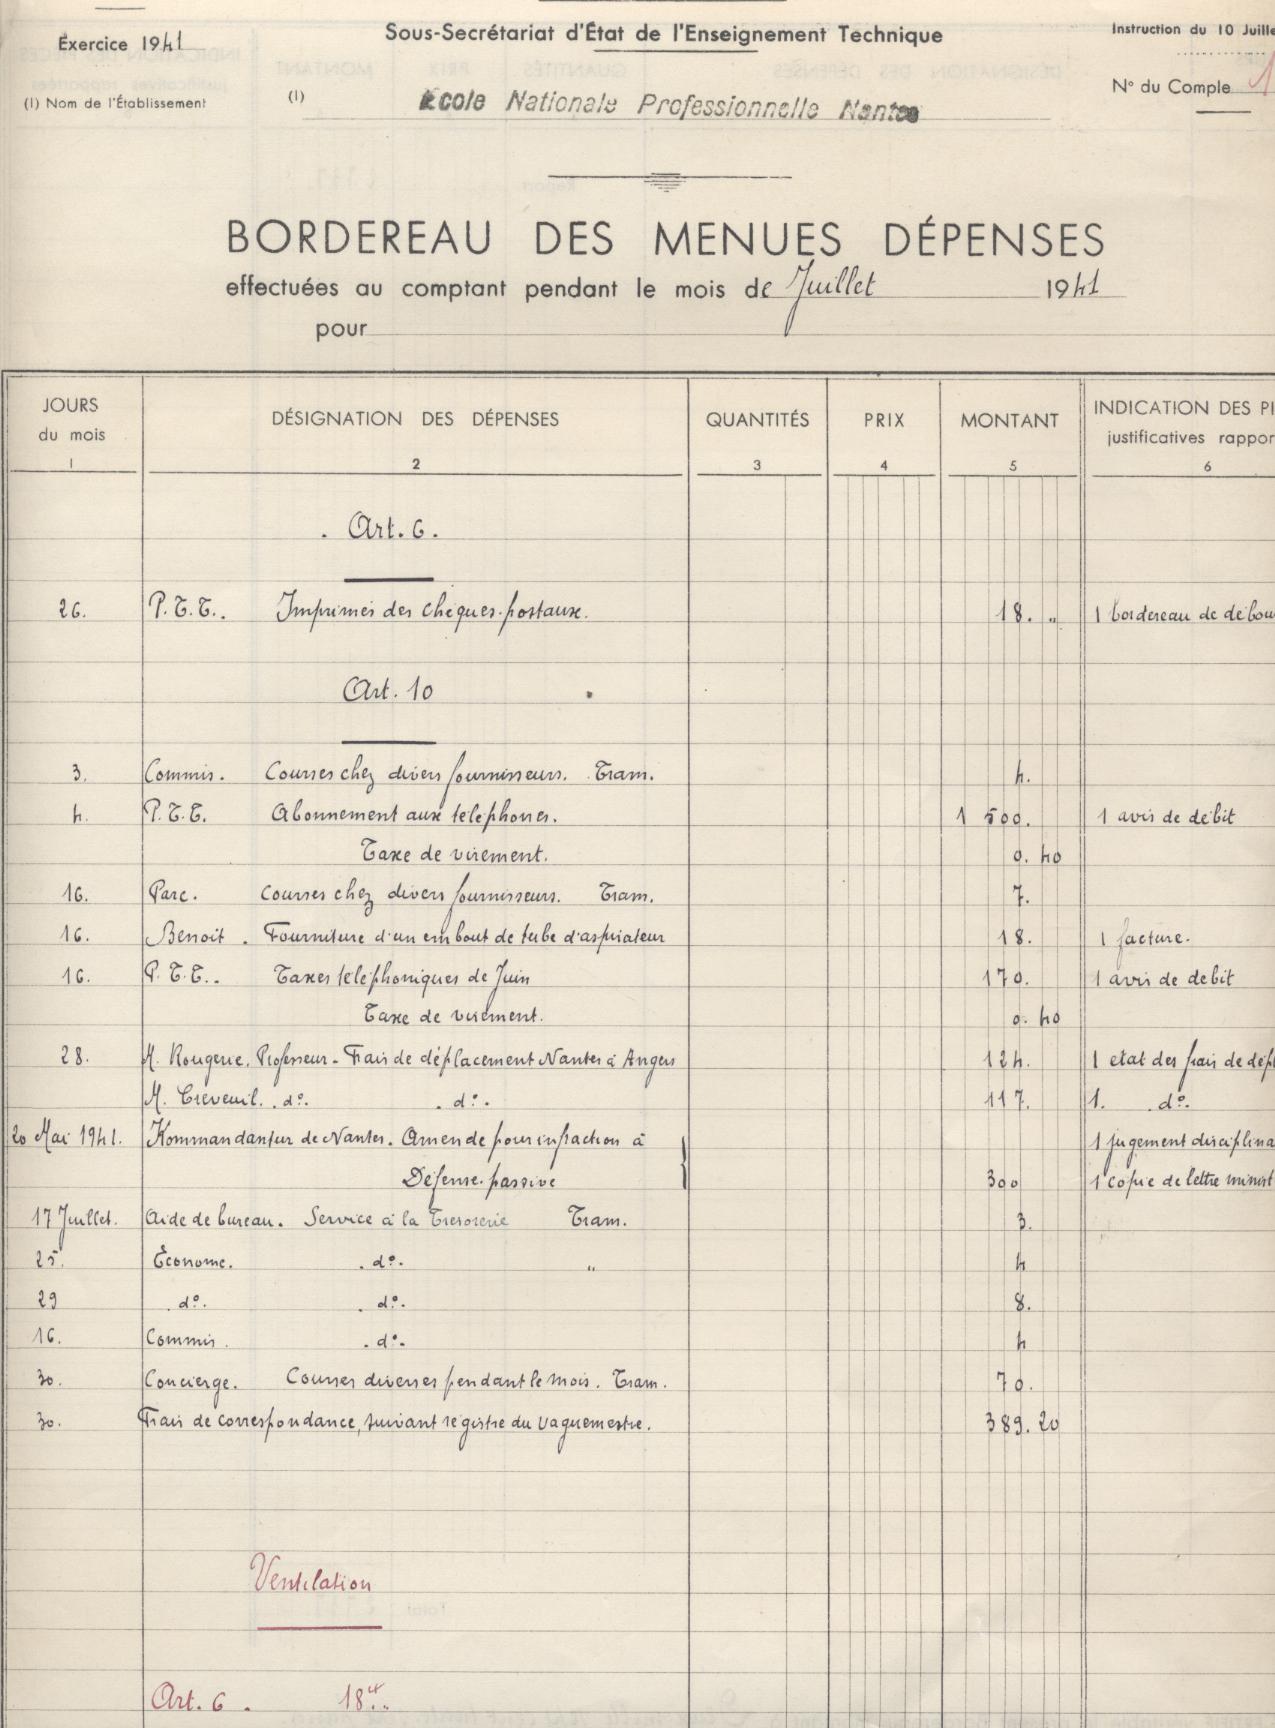 Exercice 1941
Sous-Secrétariat d'État de l'Enseignement Technique
Instruction du 10 Juille
(1) Nom de l'Établissement
(1) École Nationale Professionnelle Nantes
N° du Comple 1
BORDEREAU DES MENUES DÉPENSES
effectuées au comptant pendant le mois de Juillet 1941
pour
JOURS du mois 1 DÉSIGNATION DES DÉPENSES 2 QUANTITÉS 3 PRIX 4 MONTANT 5 INDICATION DES PI justificatives rappor 6
. Art. 6.
26. P.T.T.. Imprimés des chèques-postaux. 18. " 1 bordereau de débou
Art. 10
3. Commis. Courses chez divers fournisseurs. Tram. 4.
4. P.T.T. Abonnement aux téléphones. 1 500. 1 avis de débit
Taxe de virement. 0. 40
16. Parc. Courses chez divers fournisseurs. Tram. 7.
16. Benoit. Fourniture d'un embout de tube d'aspirateur 18. 1 facture.
16. P.T.T.. Taxes téléphoniques de Juin 170. 1 avis de débit
Taxe de virement. 0. 40
28. M. Rougerie. Professeur - Frais de déplacement Nantes à Angers 124. 1 etat des frais de dépl
M. Creveuil. . d°. . d°. 117. 1. . d°.
20 Mai 1941. Kommandantur de Nantes. Amende pour infraction à 1 jugement disciplina
Défense-passive 300 1 copie de lettre minist
17 Juillet. Aide de bureau. Service à la Tresorerie Tram. 3.
25. Économe. . d°. " 4
29 . d°. . d°. 8.
16. Commis. . d°. 4
30. Concierge. Courses diverses pendant le mois. Tram. 70.
30. Frais de correspondance, suivant registre du vaguemestre. 389. 20
Ventilation
Art. 6. 18